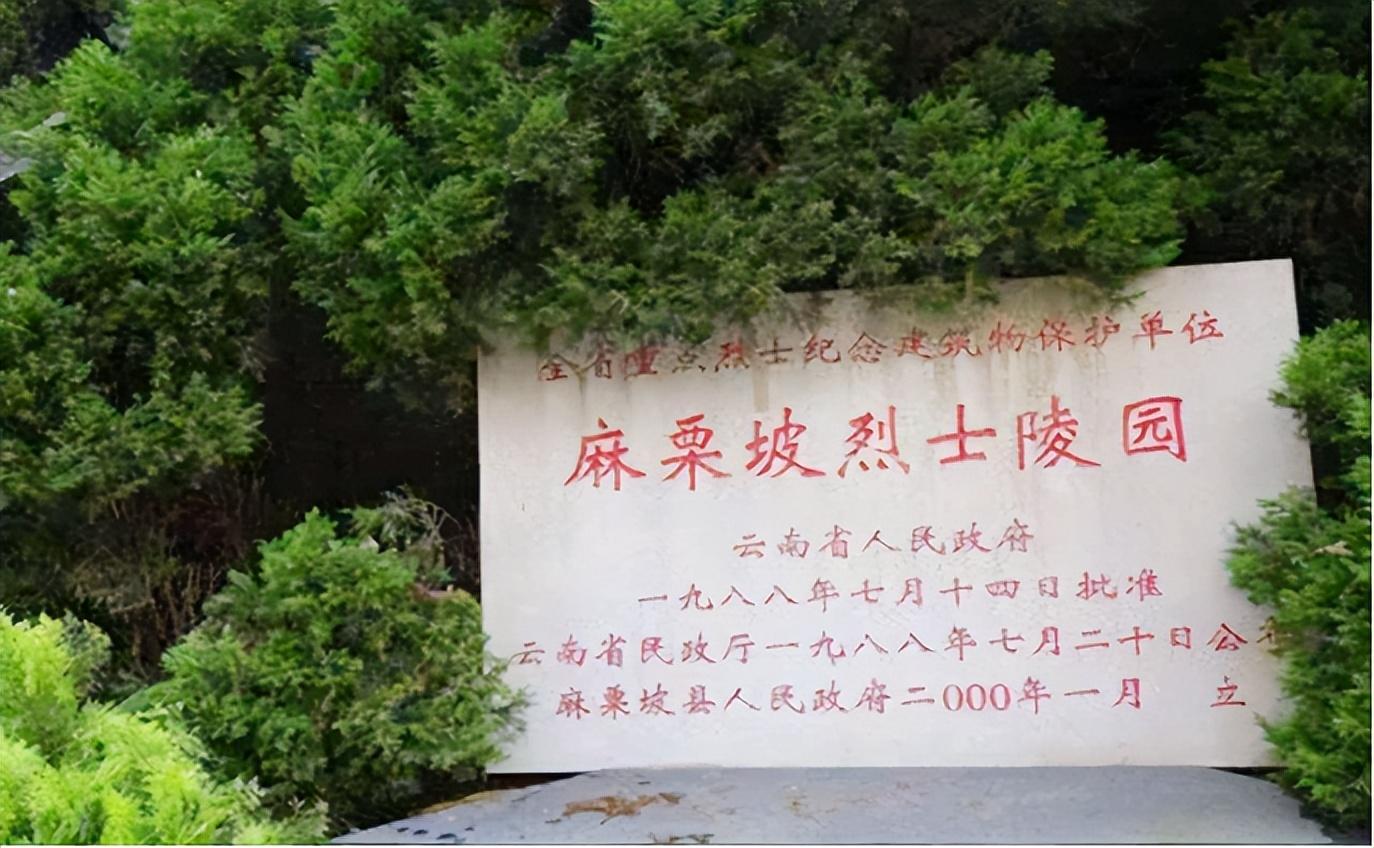 全省重点烈士纪念建筑物保护单位
麻栗坡烈士陵园
云南省人民政府
一九八八年七月十四日批准
云南省民政厅一九八八年七月二十日公
麻栗坡县人民政府二000年一月 立